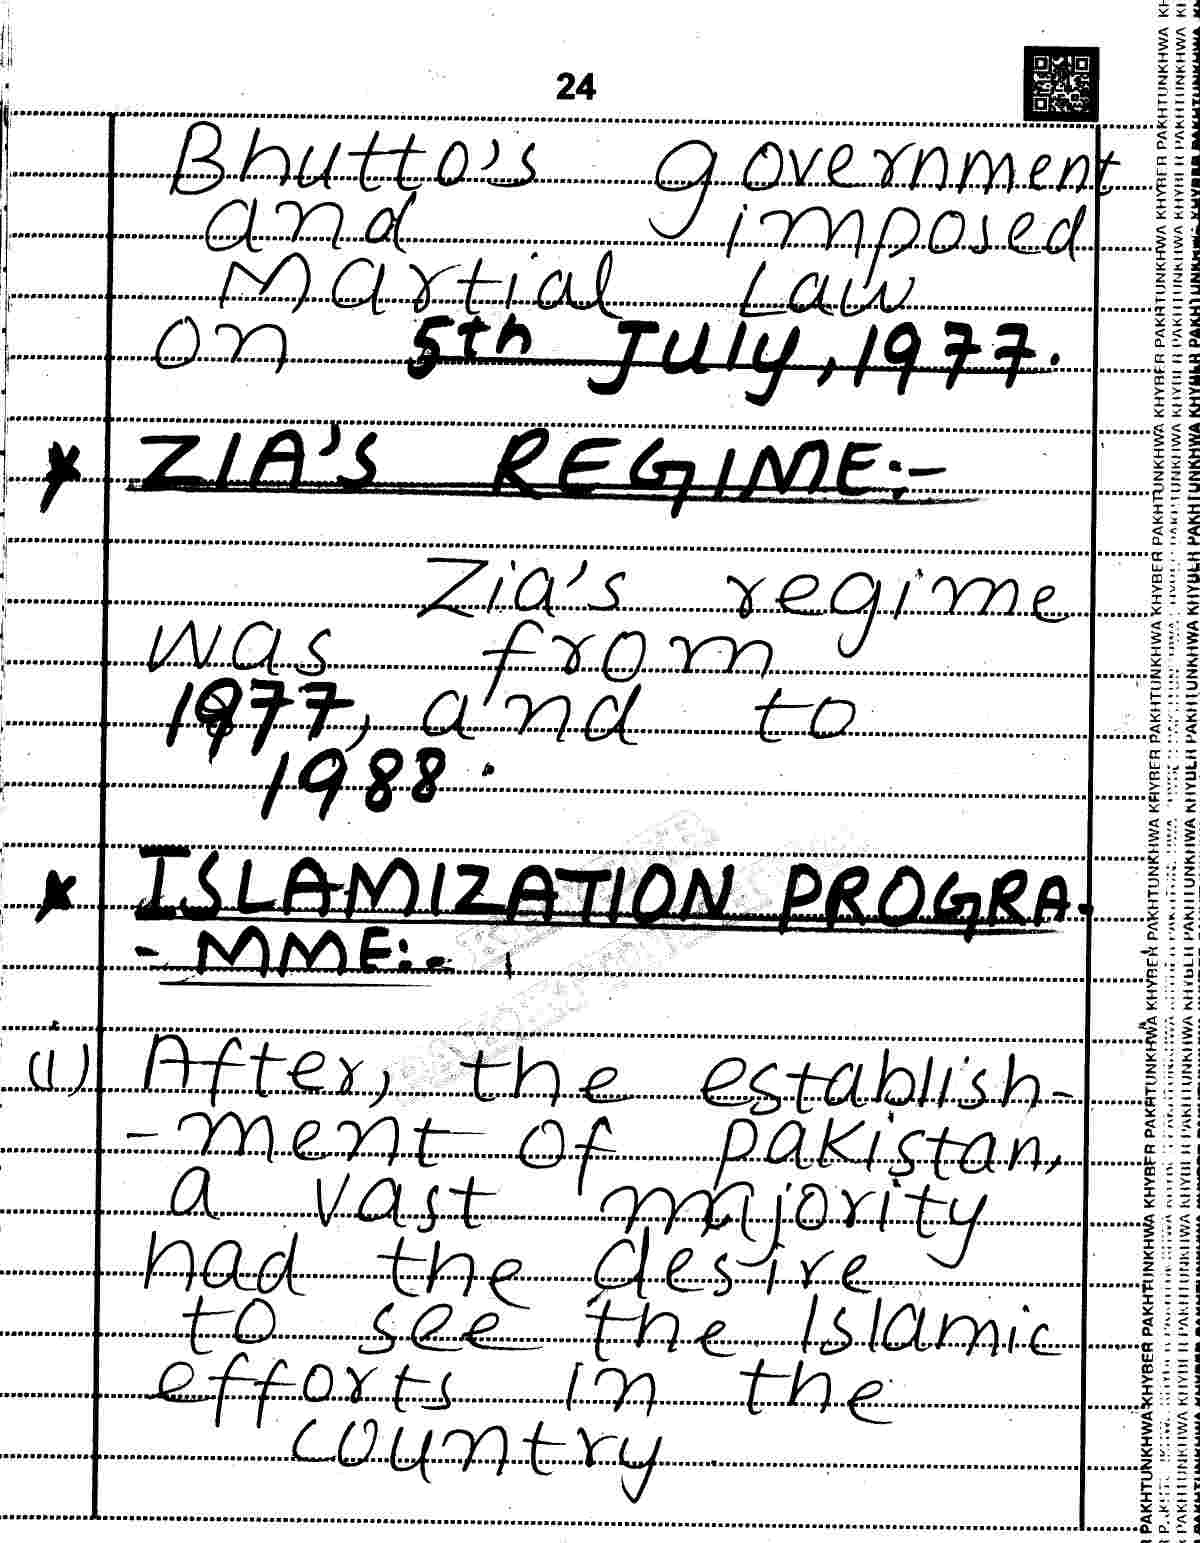 24
Bhutto's government
and imposed
Martial Law
on 5th July, 1977.
* ZIA'S REGIME:-
Zia's regime
was from
1977, and to
1988.
* ISLAMIZATION PROGRA-
-MME:-
(1) After, the establish-
-ment of pakistan,
a vast majority
had the desire
to see the Islamic
efforts in the
country
KHYBER PAKHTUNKHWA KHYBER PAKHTUNKHWA KHYBER PAKHTUNKHWA KHYBER PAKHTUNKHWA KHYBER PAKHTUNKHWA